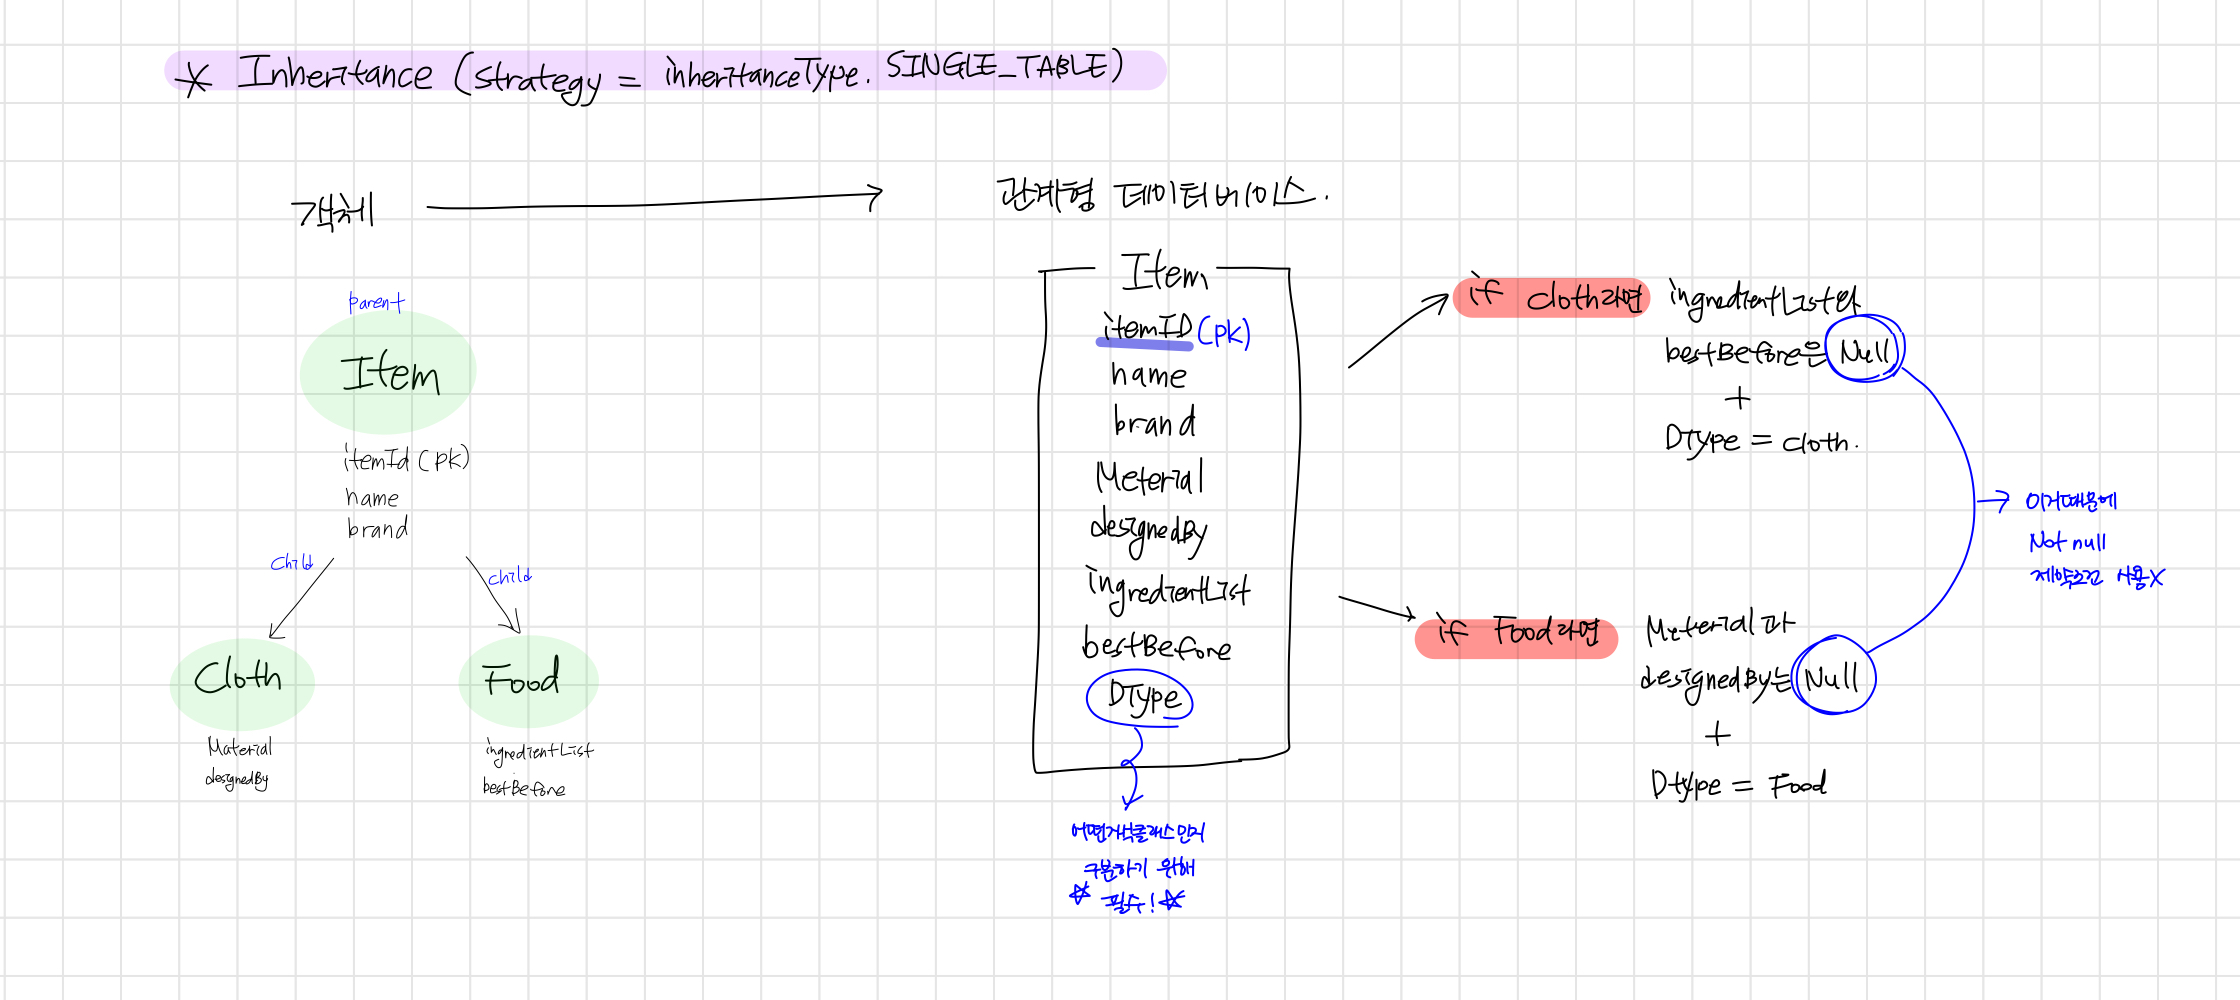 * Inheritance (strategy = inheritanceType. SINGLE_TABLE)
객체
관계형 데이터베이스.
parent
Item
itemId (pk)
name
brand
child
child
Cloth
Food
Material
designedBy
ingredientList
bestBefore
Item
itemID (pk)
name
brand
Meterial
designedBy
ingredientList
bestBefore
DType
어떤자식클래스인지
구분하기 위해
☆ 필수! ☆
if cloth라면
ingredientList와
bestBefore은 Null
+
DType = cloth.
if Food라면
Meterial과
designedBy는 Null
+
Dtype = Food
이거때문에
Not null
제약조건 사용X